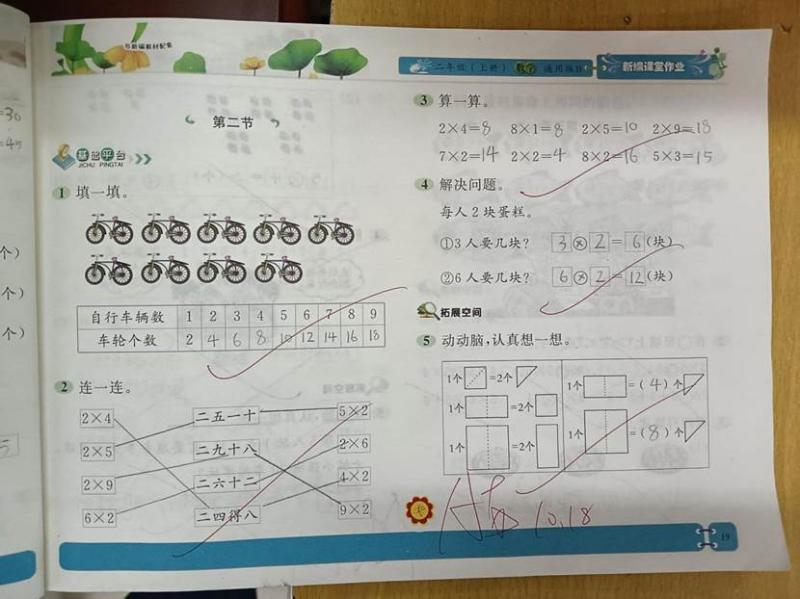 与新编教材配套
二年级(上册) 数学 通用版B
新编课堂作业
=30
=45
个)
个)
个)
5
第二节
基础平台
JICHU PINGTAI
1 填一填。
自行车辆数 1 2 3 4 5 6 7 8 9
车轮个数 2 4 6 8 10 12 14 16 18
2 连一连。
2×4 二五一十 5×2
2×5 二九十八 2×6
2×9 二六十二 4×2
6×2 二四得八 9×2
3 算一算。
2×4=8 8×1=8 2×5=10 2×9=18
7×2=14 2×2=4 8×2=16 5×3=15
4 解决问题。
每人2块蛋糕。
①3人要几块? 3×2=6(块)
②6人要几块? 6×2=12(块)
拓展空间
5 动动脑,认真想一想。
1个 =2个
1个 =2个
1个 =2个
1个 =(4)个
1个 =(8)个
10.18
19